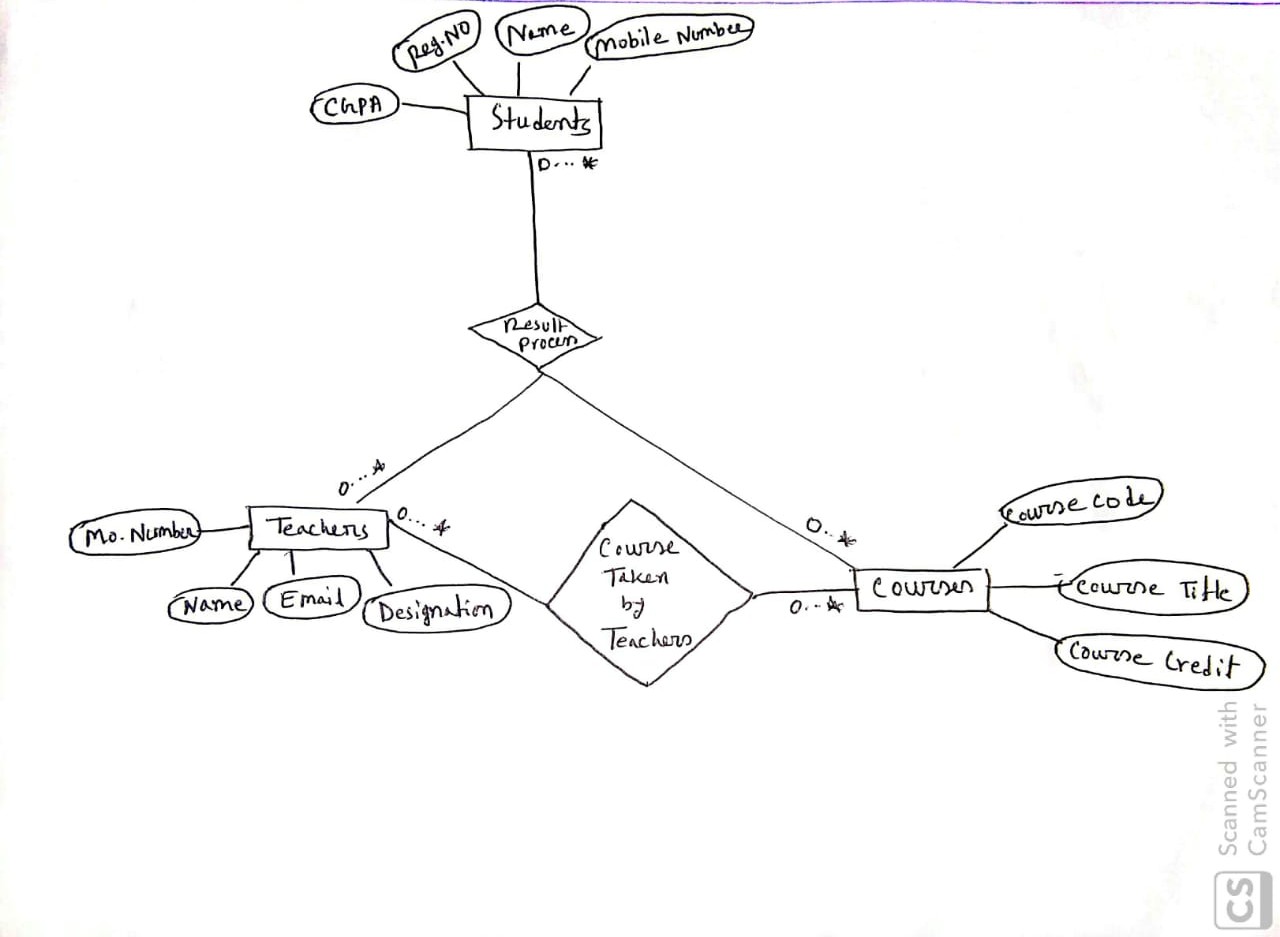 Reg.NO
Name
Mobile Number
CGPA
Students
0...*
Result
Process
0...*
0...*
0..*
Mo. Number
Teachers
Name
Email
Designation
Course
Taken
by
Teachers
0..*
Courses
Course code
Course Title
Course Credit
Scanned with
CamScanner
CS